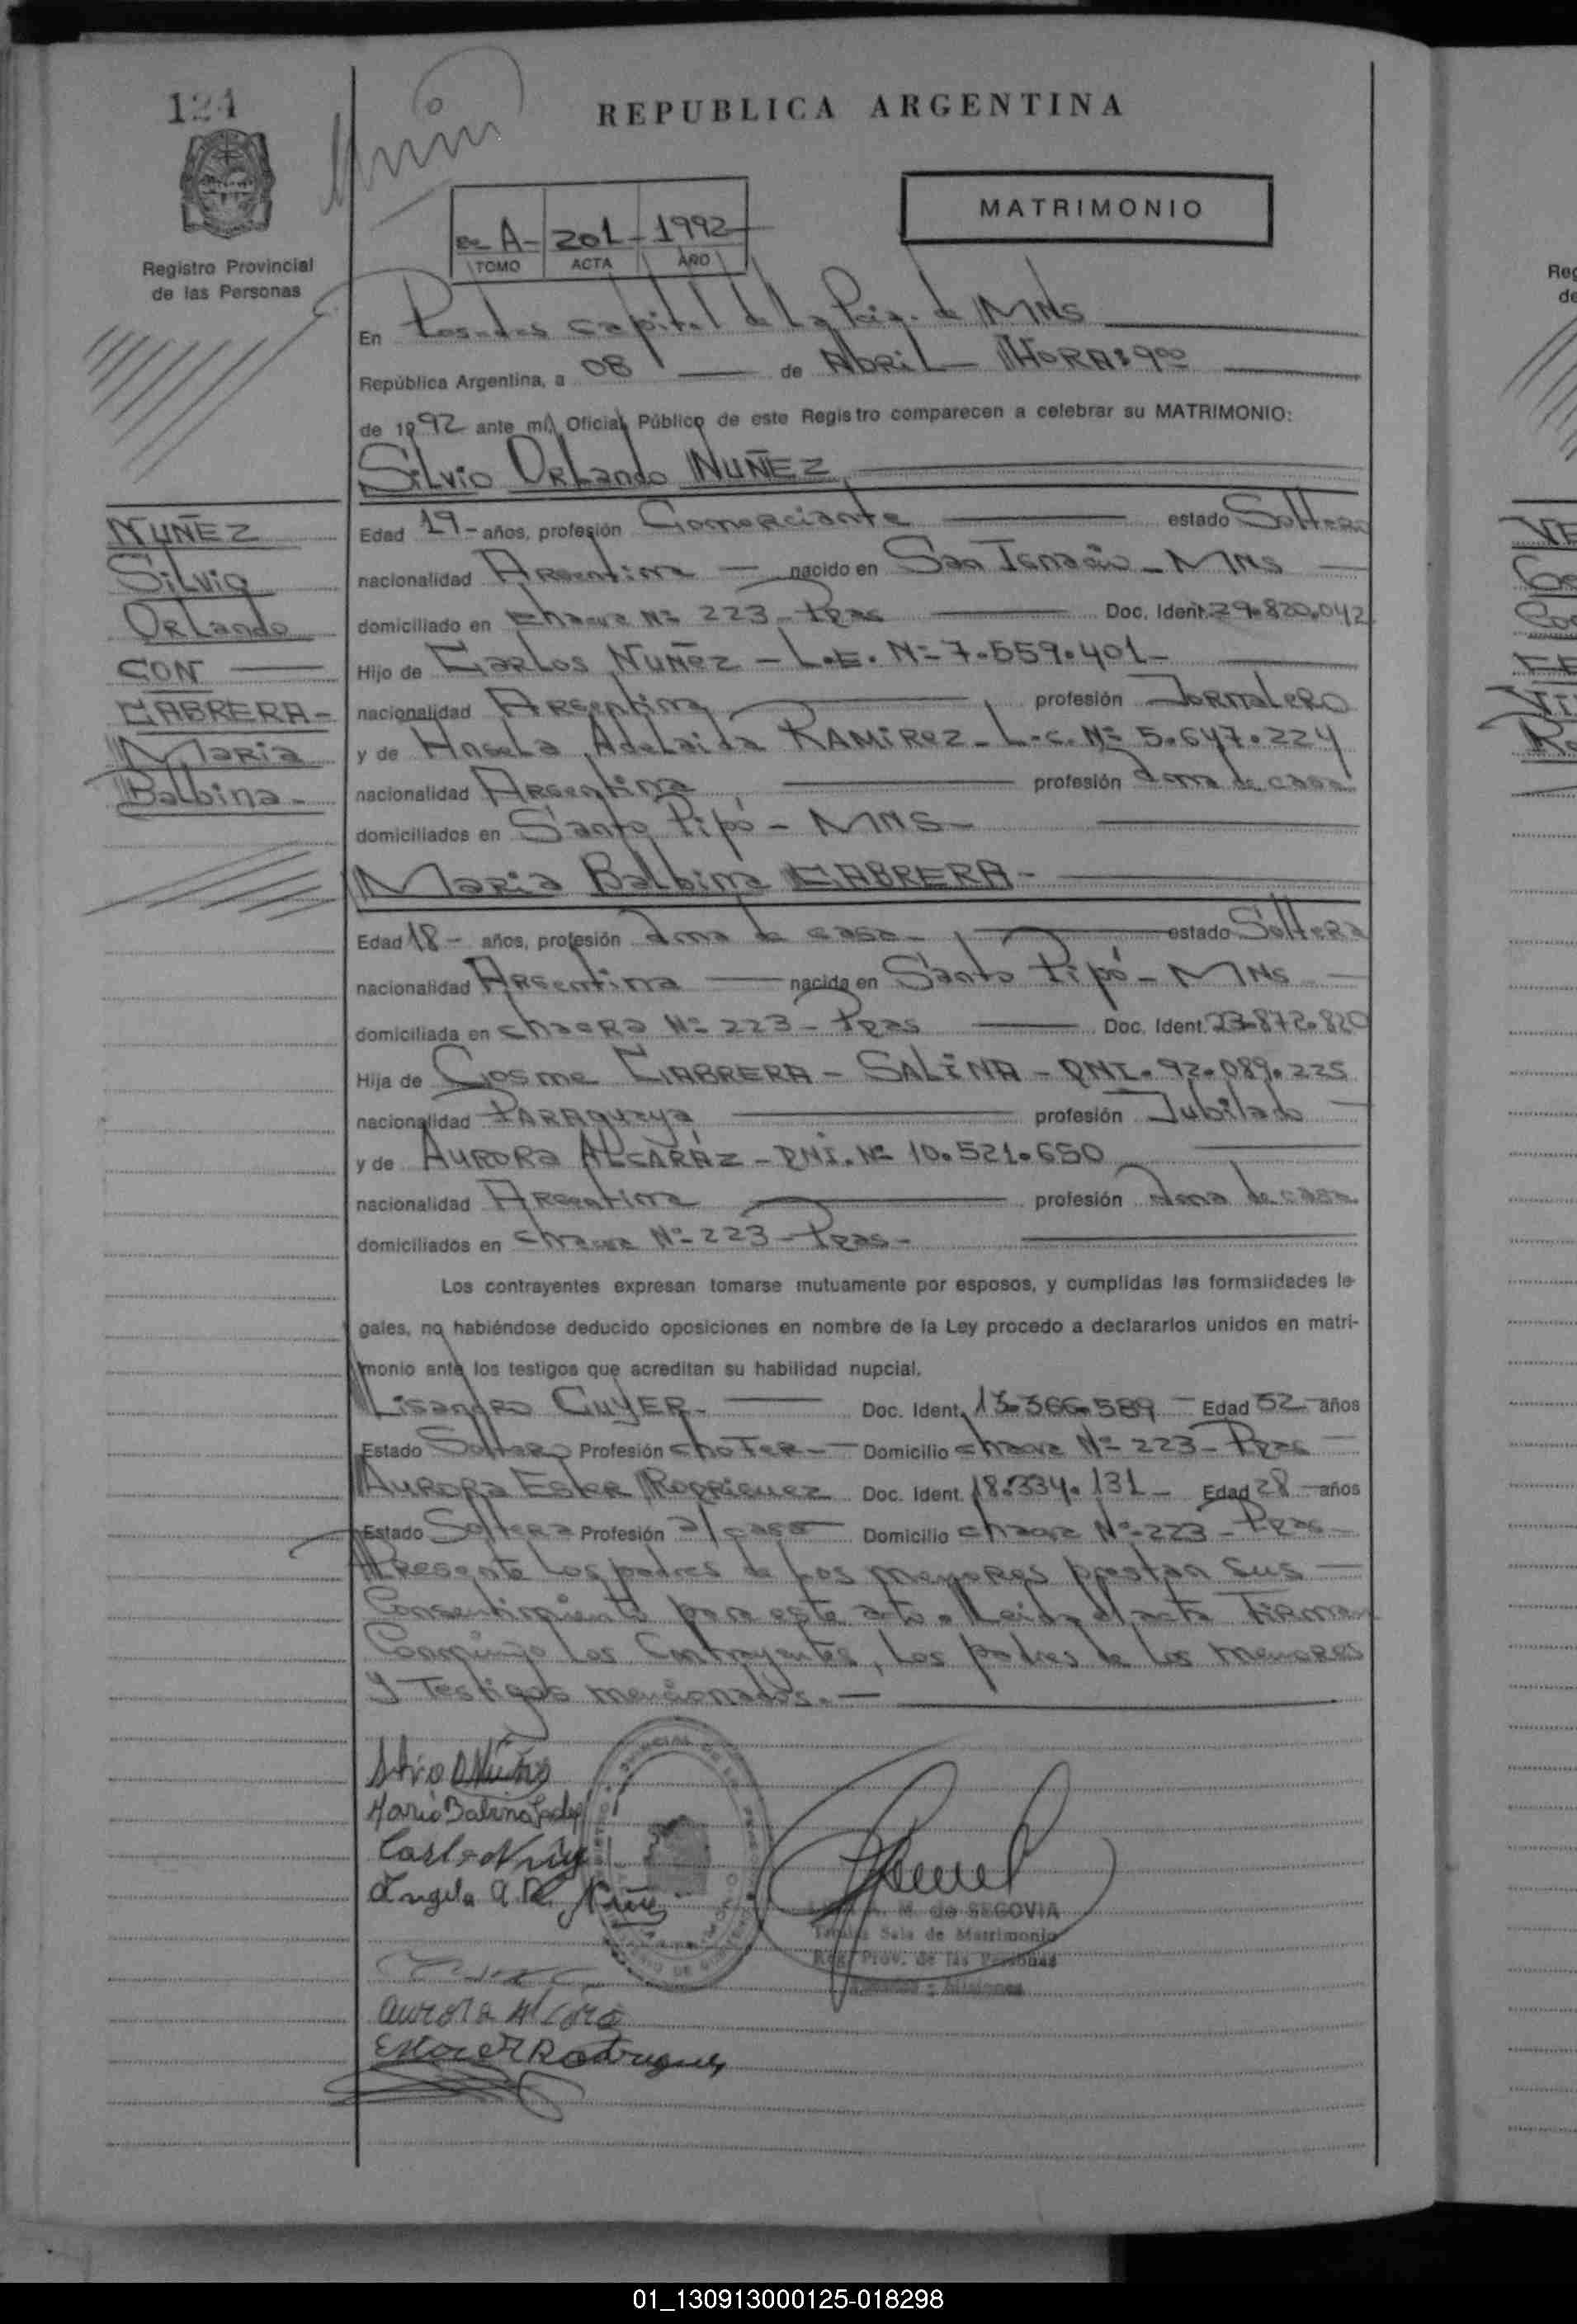 124
REPUBLICA ARGENTINA
MATRIMONIO
A- 201- 1992
TOMO ACTA AÑO
Registro Provincial
de las Personas
En Posadas capital de la de MNS
República Argentina, a 08 de Abril HORA: 9⁰⁰
de 1992 ante mí, Oficial Público de este Registro comparecen a celebrar su MATRIMONIO:
Silvio Orlando NUÑEZ
NUÑEZ
Silvio
Orlando
CON
CABRERA-
Maria
Balbina-
Edad 19- años, profesión Comerciante estado Soltero
nacionalidad Argentina nacido en San Ignacio - MNS
domiciliado en Nº 223 - Pzas Doc. Ident. 29.820.042
Hijo de Carlos Nuñez - L.E. Nº 7.559.401-
nacionalidad Argentina profesión Jornalero
y de Angela Adelaida RAMIREZ - L.C. Nº 5.647.224
nacionalidad Argentina profesión Ama de casa
domiciliados en Santo Pipó - MNS-
Maria Balbina CABRERA-
Edad 18- años, profesión Ama de casa- estado Soltera
nacionalidad Argentina nacida en Santo Pipó - MNS
domiciliada en chacra Nº 223 - Pzas Doc. Ident. 23.872.820
Hija de Cosme CABRERA - SALINA - DNI. 92.089.225
nacionalidad Paraguaya profesión Jubilado
y de AURORA ALCARAZ - DNI. Nº 10.521.650
nacionalidad Argentina profesión Ama de casa
domiciliados en Nº 223 - Pzas-
Los contrayentes expresan tomarse mutuamente por esposos, y cumplidas las formalidades le-
gales, no habiéndose deducido oposiciones en nombre de la Ley procedo a declararlos unidos en matri-
monio ante los testigos que acreditan su habilidad nupcial.
Lisandro CUYER- Doc. Ident. 13.366.589 Edad 52 años
Estado Soltero Profesión Chofer Domicilio Nº 223 - Pzas
Aurora Ester Rodriguez Doc. Ident. 18.334.131 Edad 28 años
Estado Soltera Profesión Domicilio Nº 223 - Pzas-
Presente los padres de los menores prestan sus
Consentimiento para este acto. Leida el acta Firman
Conmigo los Contrayentes, los padres de los menores
y Testigos mencionados.-
Angela A. R.
de SEGOVIA
Sala de Matrimonio
Reg. Prov. de las Personas
Misiones
Aurora
Rodriguez
01_130913000125-018298